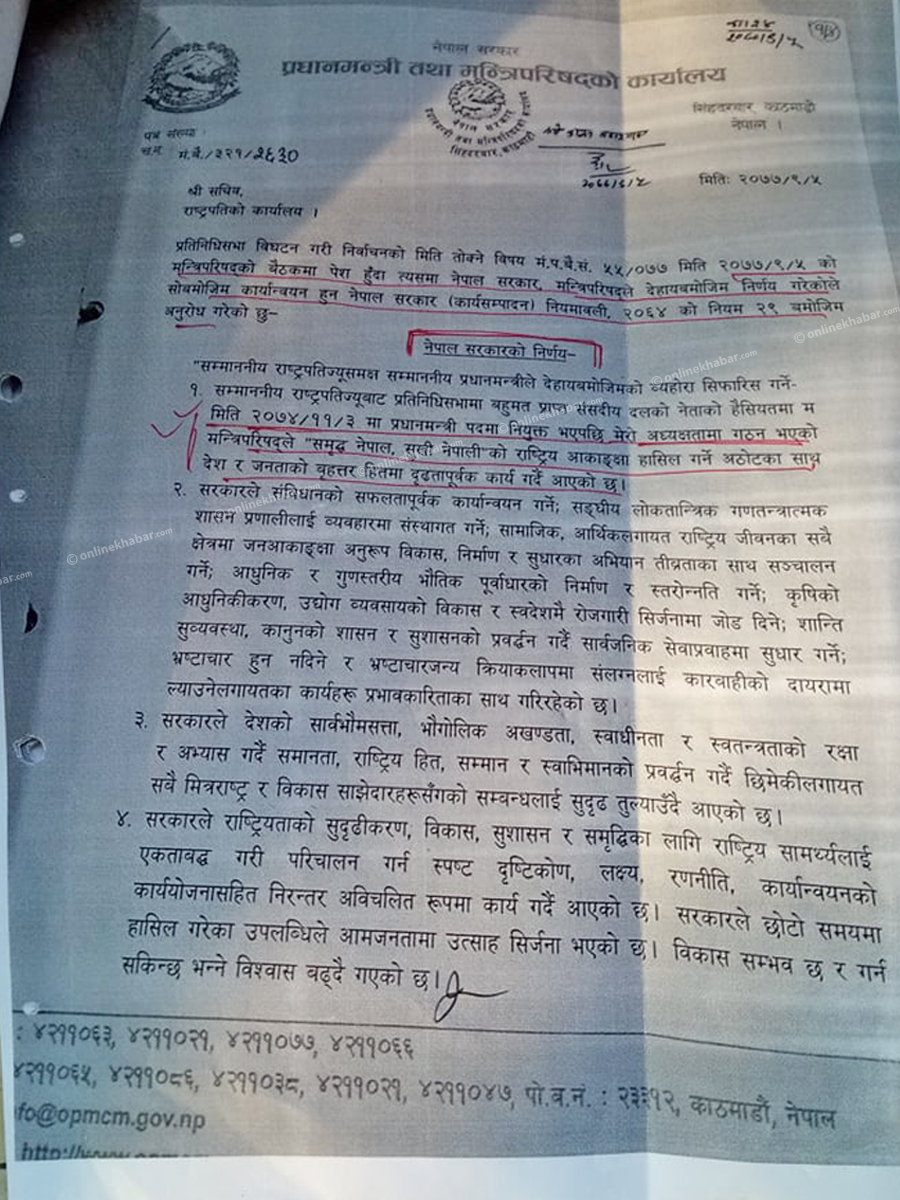 १/४
नेपाल सरकार
प्रधानमन्त्री तथा मन्त्रिपरिषद्को कार्यालय
सिंहदरबार, काठमाडौं
नेपाल ।
पत्र संख्या :
च.नं. मं.बै./३२१/२६३०
मितिः २०७७/९/५
श्री सचिव,
राष्ट्रपतिको कार्यालय ।
प्रतिनिधिसभा विघटन गरी निर्वाचनको मिति तोक्ने विषय मं.प.बै.सं. ५५/०७७ मिति २०७७/९/५ को
मन्त्रिपरिषद्को बैठकमा पेश हुँदा त्यसमा नेपाल सरकार, मन्त्रिपरिषद्ले देहायबमोजिम निर्णय गरेकोले
सोबमोजिम कार्यान्वयन हुन नेपाल सरकार (कार्यसम्पादन) नियमावली, २०६४ को नियम २९ बमोजिम
अनुरोध गरेको छु–
नेपाल सरकारको निर्णय–
"सम्माननीय राष्ट्रपतिज्यूसमक्ष सम्माननीय प्रधानमन्त्रीले देहायबमोजिमको व्यहोरा सिफारिस गर्ने–
१. सम्माननीय राष्ट्रपतिज्यूबाट प्रतिनिधिसभामा बहुमत प्राप्त संसदीय दलको नेताको हैसियतमा म
मिति २०७४/११/३ मा प्रधानमन्त्री पदमा नियुक्त भएपछि मेरो अध्यक्षतामा गठन भएको
मन्त्रिपरिषद्ले "समृद्ध नेपाल, सुखी नेपाली"को राष्ट्रिय आकाङ्क्षा हासिल गर्ने अठोटका साथ
देश र जनताको बृहत्तर हितमा दृढतापूर्वक कार्य गर्दै आएको छ।
२. सरकारले संविधानको सफलतापूर्वक कार्यान्वयन गर्ने; सङ्घीय लोकतान्त्रिक गणतन्त्रात्मक
शासन प्रणालीलाई व्यवहारमा संस्थागत गर्ने; सामाजिक, आर्थिकलगायत राष्ट्रिय जीवनका सबै
क्षेत्रमा जनआकाङ्क्षा अनुरूप विकास, निर्माण र सुधारका अभियान तीव्रताका साथ सञ्चालन
गर्ने; आधुनिक र गुणस्तरीय भौतिक पूर्वाधारको निर्माण र स्तरोन्नति गर्ने; कृषिको
आधुनिकीकरण, उद्योग व्यवसायको विकास र स्वदेशमै रोजगारी सिर्जनामा जोड दिने; शान्ति
सुव्यवस्था, कानुनको शासन र सुशासनको प्रवर्द्धन गर्दै सार्वजनिक सेवाप्रवाहमा सुधार गर्ने;
भ्रष्टाचार हुन नदिने र भ्रष्टाचारजन्य क्रियाकलापमा संलग्नलाई कारवाहीको दायरामा
ल्याउनेलगायतका कार्यहरू प्रभावकारिताका साथ गरिरहेको छ।
३. सरकारले देशको सार्वभौमसत्ता, भौगोलिक अखण्डता, स्वाधीनता र स्वतन्त्रताको रक्षा
र अभ्यास गर्दै समानता, राष्ट्रिय हित, सम्मान र स्वाभिमानको प्रवर्द्धन गर्दै छिमेकीलगायत
सबै मित्रराष्ट्र र विकास साझेदारहरूसँगको सम्बन्धलाई सुदृढ तुल्याउँदै आएको छ।
४. सरकारले राष्ट्रियताको सुदृढीकरण, विकास, सुशासन र समृद्धिका लागि राष्ट्रिय सामर्थ्यलाई
एकताबद्ध गरी परिचालन गर्न स्पष्ट दृष्टिकोण, लक्ष्य, रणनीति, कार्यान्वयनको
कार्ययोजनासहित निरन्तर अविचलित रूपमा कार्य गर्दै आएको छ। सरकारले छोटो समयमा
हासिल गरेका उपलब्धिले आमजनतामा उत्साह सिर्जना भएको छ। विकास सम्भव छ र गर्न
सकिन्छ भन्ने विश्वास बढ्दै गएको छ।
: ४२११०६३, ४२११०२१, ४२११०७७, ४२११०६६
४२११०६५, ४२११०८६, ४२११०३८, ४२११०२१, ४२११०४७, पो.ब.नं. : २३३१२, काठमाडौं, नेपाल
nfo@opmcm.gov.np
© onlinekhabar.com
© onlinekhabar.com
© onlinekhabar.com
© onlinekhabar.com